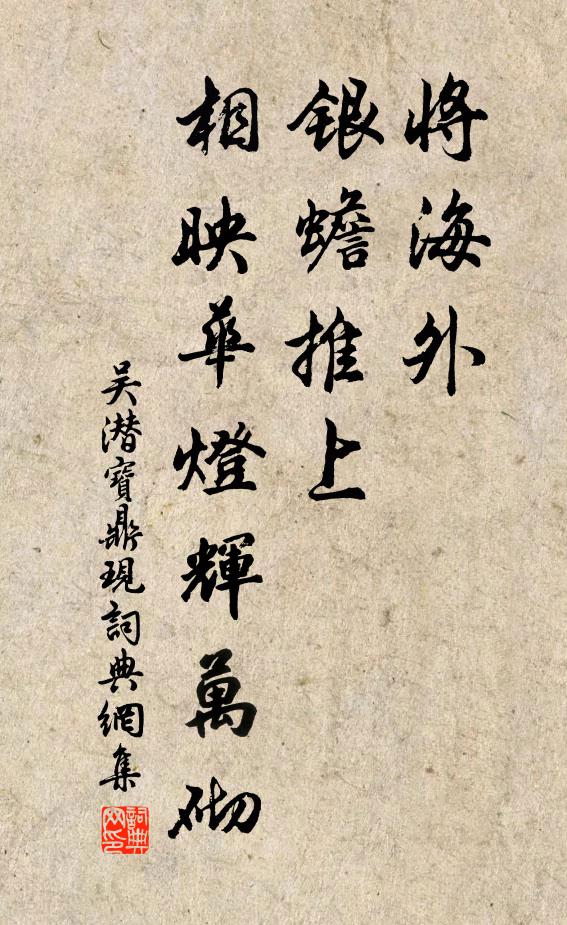 將海外
銀蟾推上
相映華燈輝萬砌
吴潛寶鼎現詞典網集
詞典網印